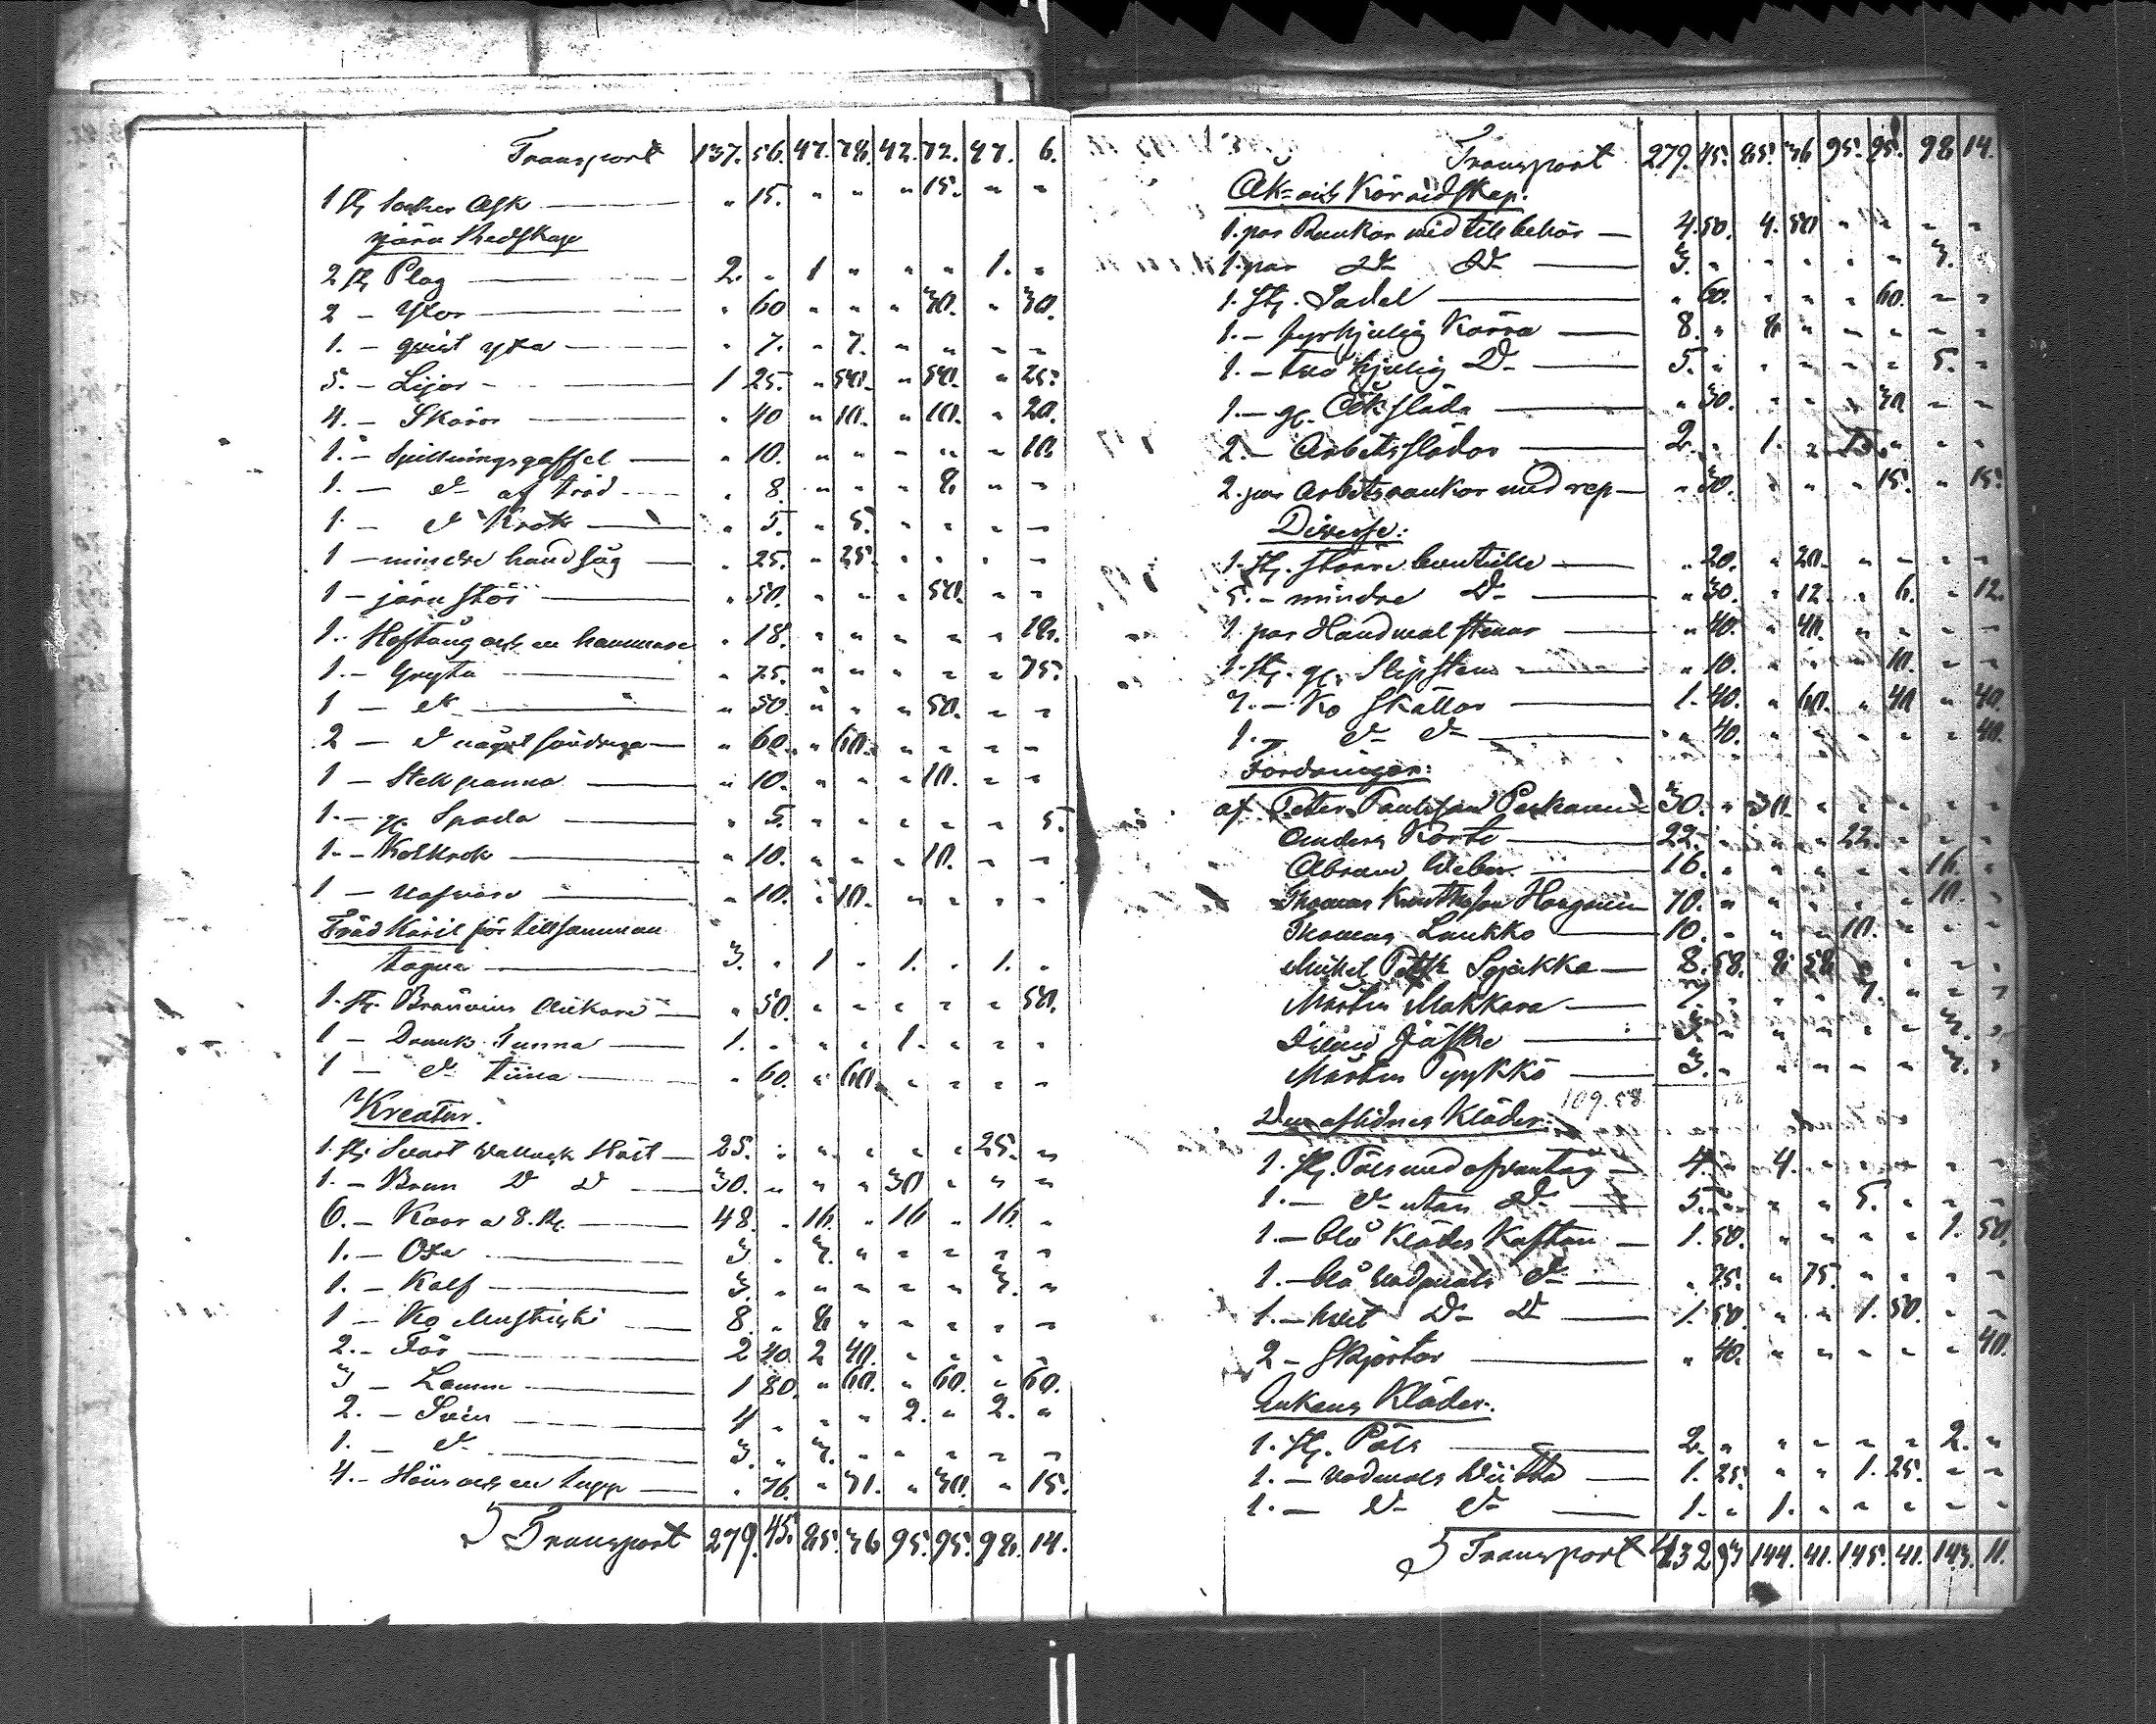 Transport 137. 56. 47. 78. 42. 72. 47. 6.
1 st socker Ask " 15. " " " 15. " "
järn Redskap
2 st Plog 2. " 1 " " " 1. "
2 - Yxor " 60 " " " 30. " 30.
1. - qvist yxa " 7. " 7. " " " "
5. - Lijor 1 25. " 50. " 50. " 25.
4. - Skäror " 40 " 10. " 10. " 20.
1. - Spillningsgaffel " 10. " " " " " 10.
1. - d:o af träd " 8. " " " 8. " "
1. - d:o Krok " 5. " 5. " " " "
1 - mindre handsåg " 25. " 25. " " " "
1 - järn stör " 50. " " " 50. " "
1. Hoftång och en hammare " 18. " " " " " 18.
1. - Gryta " 75. " " " " " 75.
1 - d:o " 50. " " " 50. " "
2 - d:o något söndriga " 60. " 60. " " " "
1 - Stekpanna " 10. " " " 10. " "
1. - gl. Spada " 5. " " " " " 5.
1. - Kolkrok " 10. " " " 10. " "
1 - Nafvare " 10. " 10. " " " "
Träd Käril för tillsamman
tagna 3. " 1 " 1. " 1. "
1. st. Bränvins Ankare " 50. " " " " " 50.
1 - Dricks Tunna 1. " " " 1. " " "
1 - d:o tina " 60. " 60. " " " "
Kreatur.
1. st. Svart Wallack Häst 25. " " " " " 25. "
1. - Brun D:o D:o 30. " " " 30 " " "
6. - Koor a 8. R. 48. " 16. " 16 " 16. "
1. - Oxe 3 " 3. " " " " "
1. - Kalf 3. " " " " " 3. "
1 - Ko Mustikki 8. " 8. " " " " "
2. - Får 2 40. 2 40. " " " "
3 - Lamm 1 80. " 60. " 60. " 60.
2. - Svin 4 " " " 2. " 2. "
1. - d:o 3. " 3. " " " " "
4. - Höns och en tupp " 76. " 31. " 30. " 15.
Transport 279. 45. 85. 36 95. 95. 98. 14.
Transport 279. 45. 85. 36 95. 95. 98 14.
Åk- och Körredskap.
1. par Rankor med tillbehör 4. 50. 4. 50 " " " "
1. par D:o D:o 3. " " " " " 3. "
1. st. Sadel " 60. " " " 60. " "
1. - fyrhjulig Kärra 8. " 8. " " " " "
1. - två hjulig D:o 5. " " " " " 5. "
1. - gl. Åksläda " 30. " " " 30 " "
2. - Arbetsslädor 2. " 1. " 1. " " "
2. par Arbetsrankor med rep " 30. " " " 15. " 15.
Diverse:
1. st. större bouteille " 20. " 20. " " " "
5. - mindre D:o " 30. " 12. " 6. " 12.
1. par Handmal stenar " 40. " 40. " " " "
1. st. gl. Slipsten " 10. " " " 10. " "
7. - Ko skällor 1. 40. " 60. " 40 " 40.
1. - d:o d:o " 40. " " " " " 40.
Fordringar:
af Peter 30. " 30. " " " " "
Anders Korte 22. " " " 22. " " "
Abram Weber 16. " " " " " 16. "
Thomas 10. " " " " " 10. "
Thomas Laukko 10. " " " 10. " " "
Mickel 8. 58. 8. 58 " " " "
Mårten Makkara 7. " " " 7. " " "
3. " " " " " 3. "
Mårten Pyykkö 3. " " " " " 3. "
109. 58.
Den aflidnes Kläder:
1. st. Päls med öfvertåg 4. " 4. " " " " "
1. - d:o utan D:o 5. " " " 5. " " "
1. - blå Klädes Kaftan 1. 50. " " " " 1. 50.
1. - blå Vadmals D:o " 75. " 75. " " " "
1. - hvit D:o D:o 1. 50. " " 1. 50. " "
2 - Skjortor " 40. " " " " " 40.
Enkans Kläder.
1. st. Päls 2. " " " " " 2. "
1. - vadmals 1. 25. " " 1. 25. " "
1. - D:o d:o 1. " 1. " " " " "
Transport 432 93 144. 41. 145. 41. 143. 11.